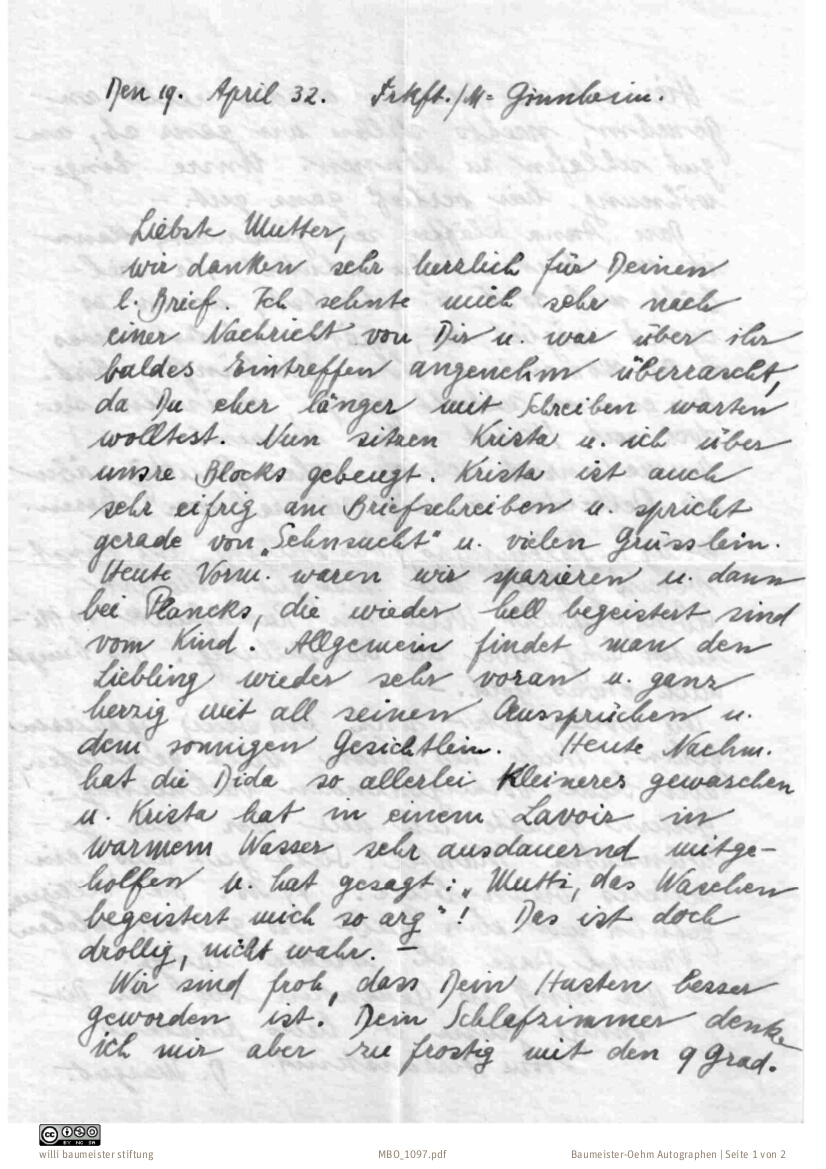 Den 19. April 32. Frkft./M= Ginnheim.
Liebste Mutter,
wir danken sehr herzlich für Deinen
l. Brief. Ich sehnte mich sehr nach
einer Nachricht von Dir u. war über ihr
baldes Eintreffen angenehm überrascht,
da Du eher länger mit Schreiben warten
wolltest. Nun sitzen Krista u. ich über
unsre Blocks gebeugt. Krista ist auch
sehr eifrig am Briefschreiben u. spricht
gerade von „Sehnsucht" u. vielen Grüsslein.
Heute Vorm. waren wir spazieren u. dann
bei Plancks, die wieder hell begeistert sind
vom Kind. Allgemein findet man den
Liebling wieder sehr voran u. ganz
herzig mit all seinen Aussprüchen u.
dem sonnigen Gesichtlein. Heute Nachm.
hat die Dida so allerlei Kleineres gewaschen
u. Krista hat in einem Lavoir in
warmem Wasser sehr ausdauernd mitge-
holfen u. hat gesagt: „Mutti, das Waschen
begeistert mich so arg"! Das ist doch
drollig, nicht wahr. —
Wir sind froh, dass Dein Husten besser
geworden ist. Dein Schlafzimmer denke
ich mir aber zu frostig mit den 9 Grad.
cc BY NC SA
willi baumeister stiftung MBO_1097.pdf Baumeister-Oehm Autographen | Seite 1 von 2